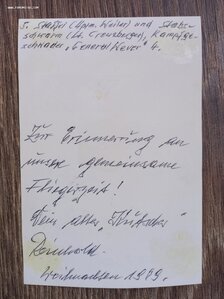 5. Staffel (Hptm. Weiler) und Stabs-
schwarm (Lt. Creuzberger), Kampfge-
schwader „General Wever" 4.
Zur Erinnerung an
unsere gemeinsame
Fliegerzeit!
Dein alter
Reinhold.
Weihnachten 1979.